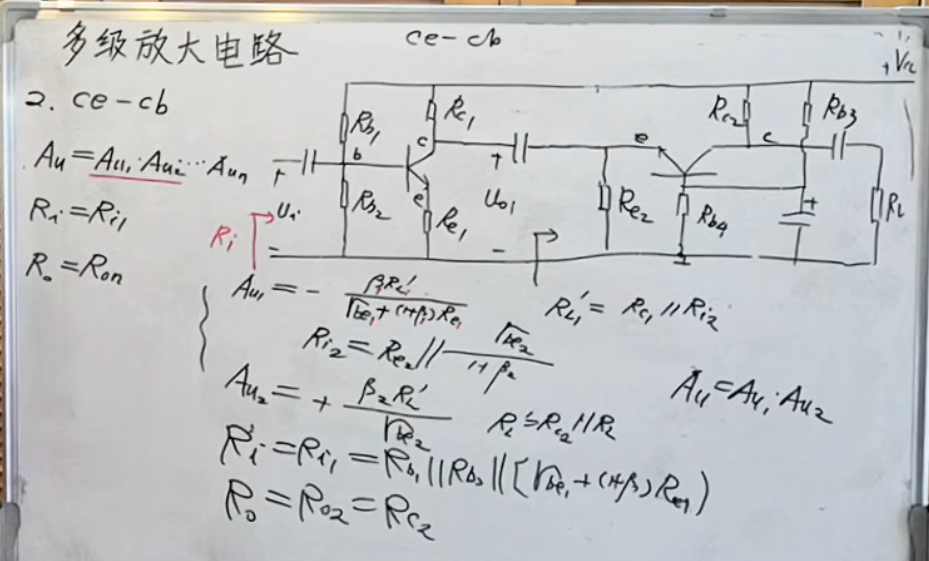 多级放大电路
ce-cb
+Vcc
2. ce-cb
Au = Au₁·Au₂···Aun
Ri = Ri₁
Ro = Ron
Rb₁
Rc₁
c
b
e
Rb₂
Re₁
+
Ui
Ri
+
Uo₁
-
e
c
Rc₂
Rb₃
Re₂
Rb₄
+
RL
Au₁ = - βRL₁' / (rbe₁+(1+β₁)Re₁)
RL₁' = Rc₁ // Ri₂
Ri₂ = Re₂ // rbe₂ / (1+β₂)
Au₂ = + β₂RL' / rbe₂
RL' = Rc₂ // RL
Au = Au₁·Au₂
Ri = Ri₁ = Rb₁ || Rb₂ || [rbe₁ + (1+β₁)Re₁)
Ro = Ro₂ = Rc₂